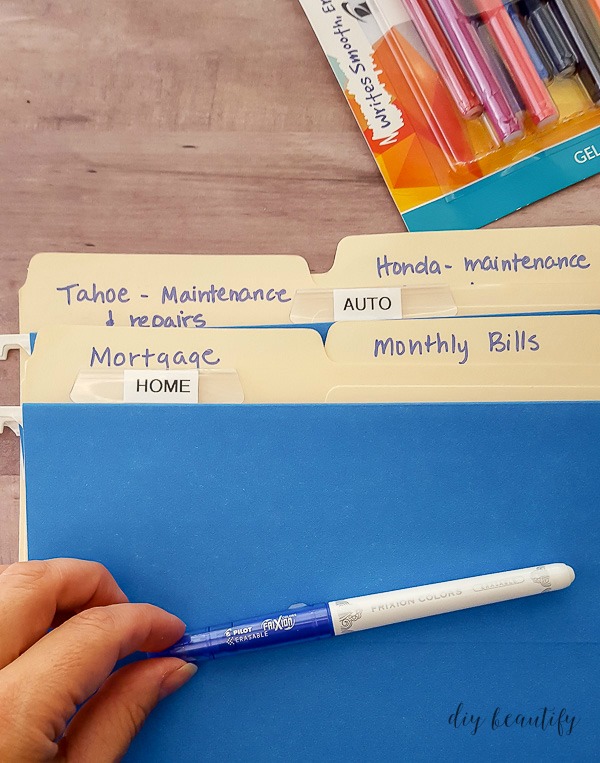 Writes Smooth, Er
GEL
Honda - maintenance
Tahoe - Maintenance
& repairs
AUTO
Monthly Bills
Mortgage
HOME
FRIXION COLORS
PILOT FRIXION
ERASABLE
diy beautify